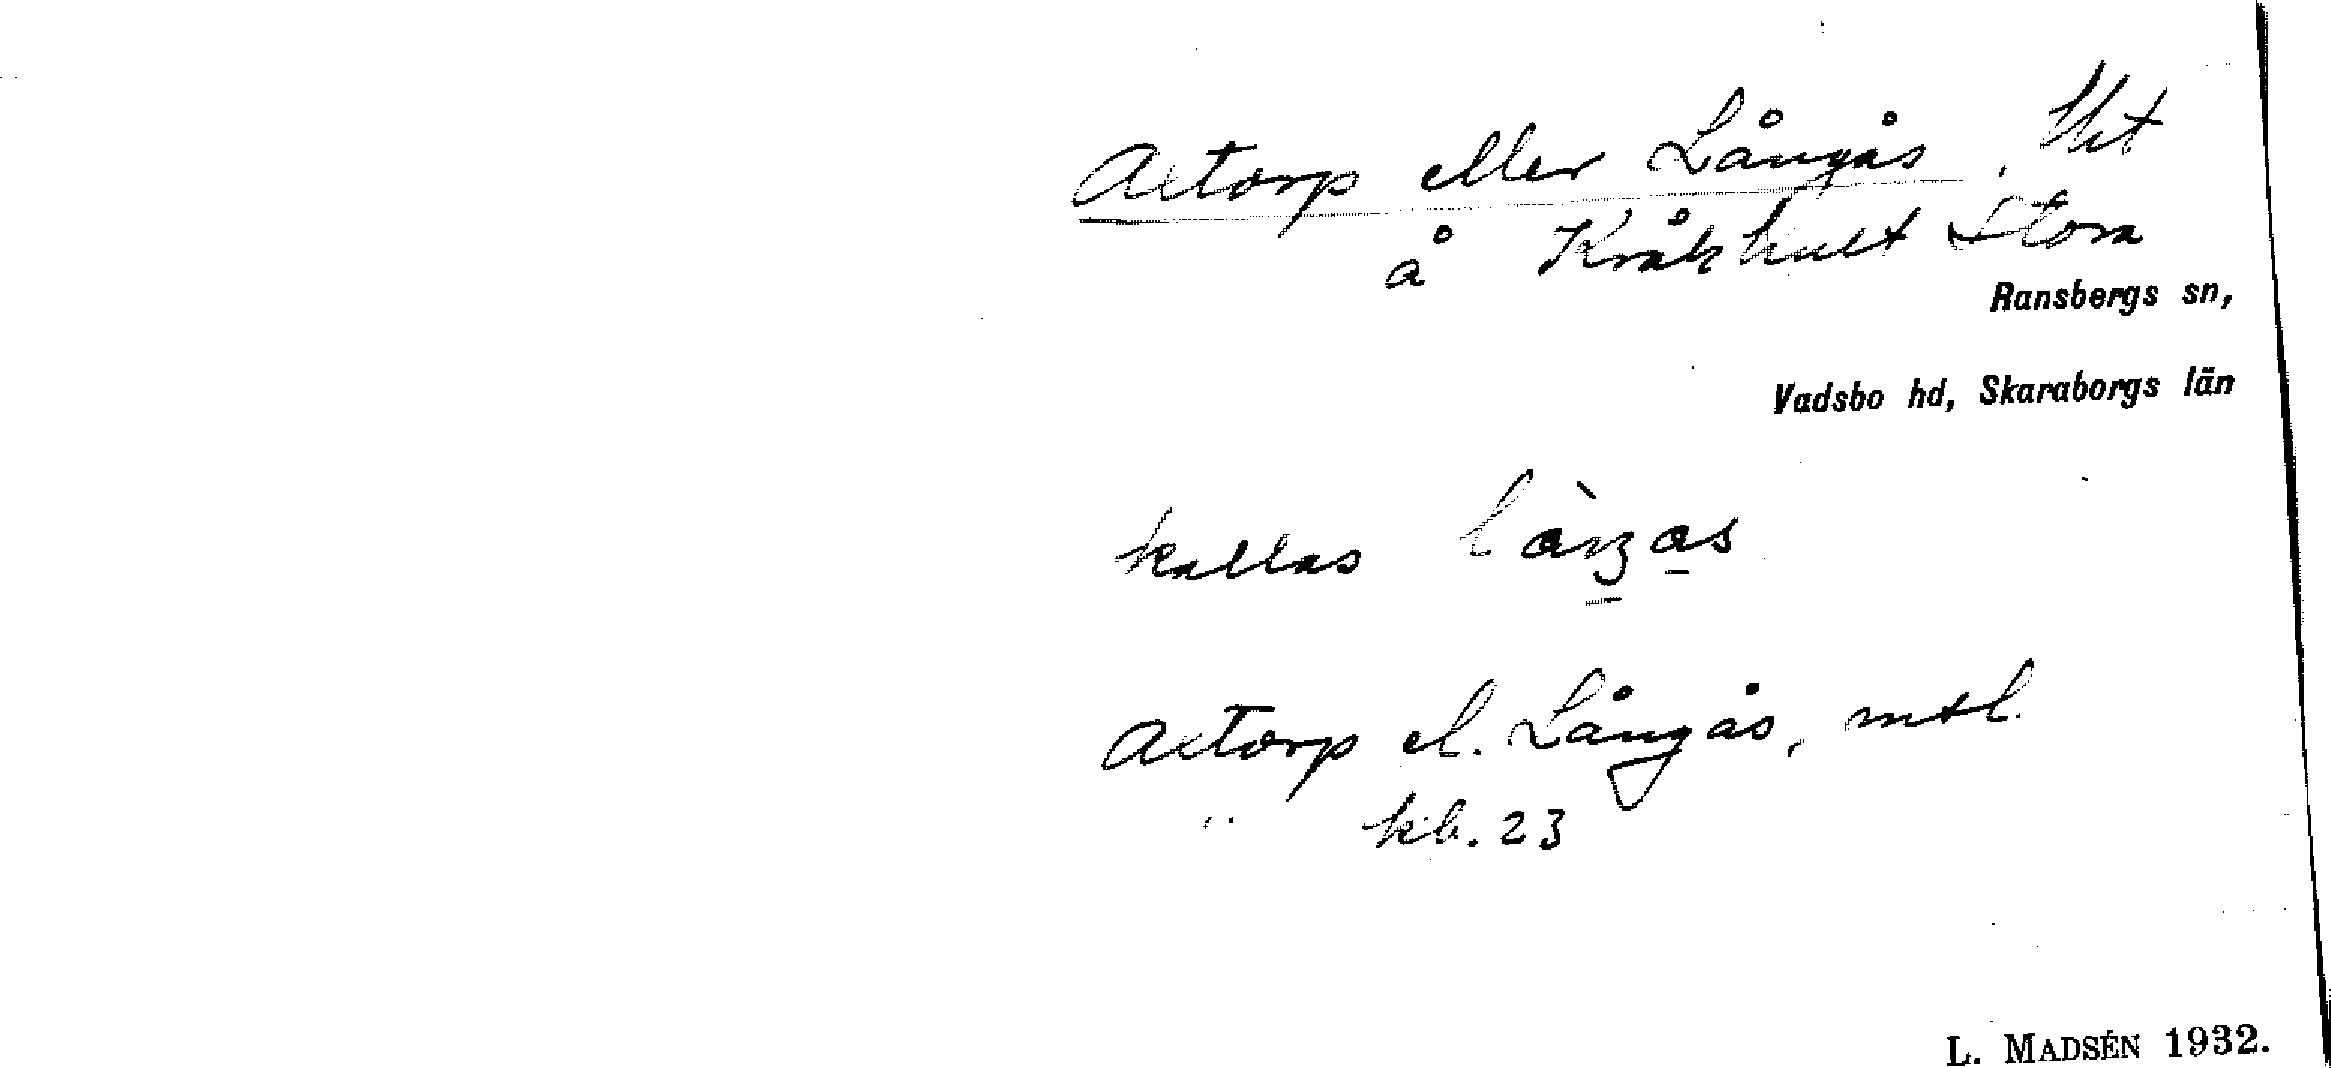 Altorp eller Långås, lht
å Kråkhult Stora
Ransbergs sn,
Vadsbo hd, Skaraborgs län
kallas
Altorp el. Långås, mtl.
" kb. 23
L. MADSÉN 1932.